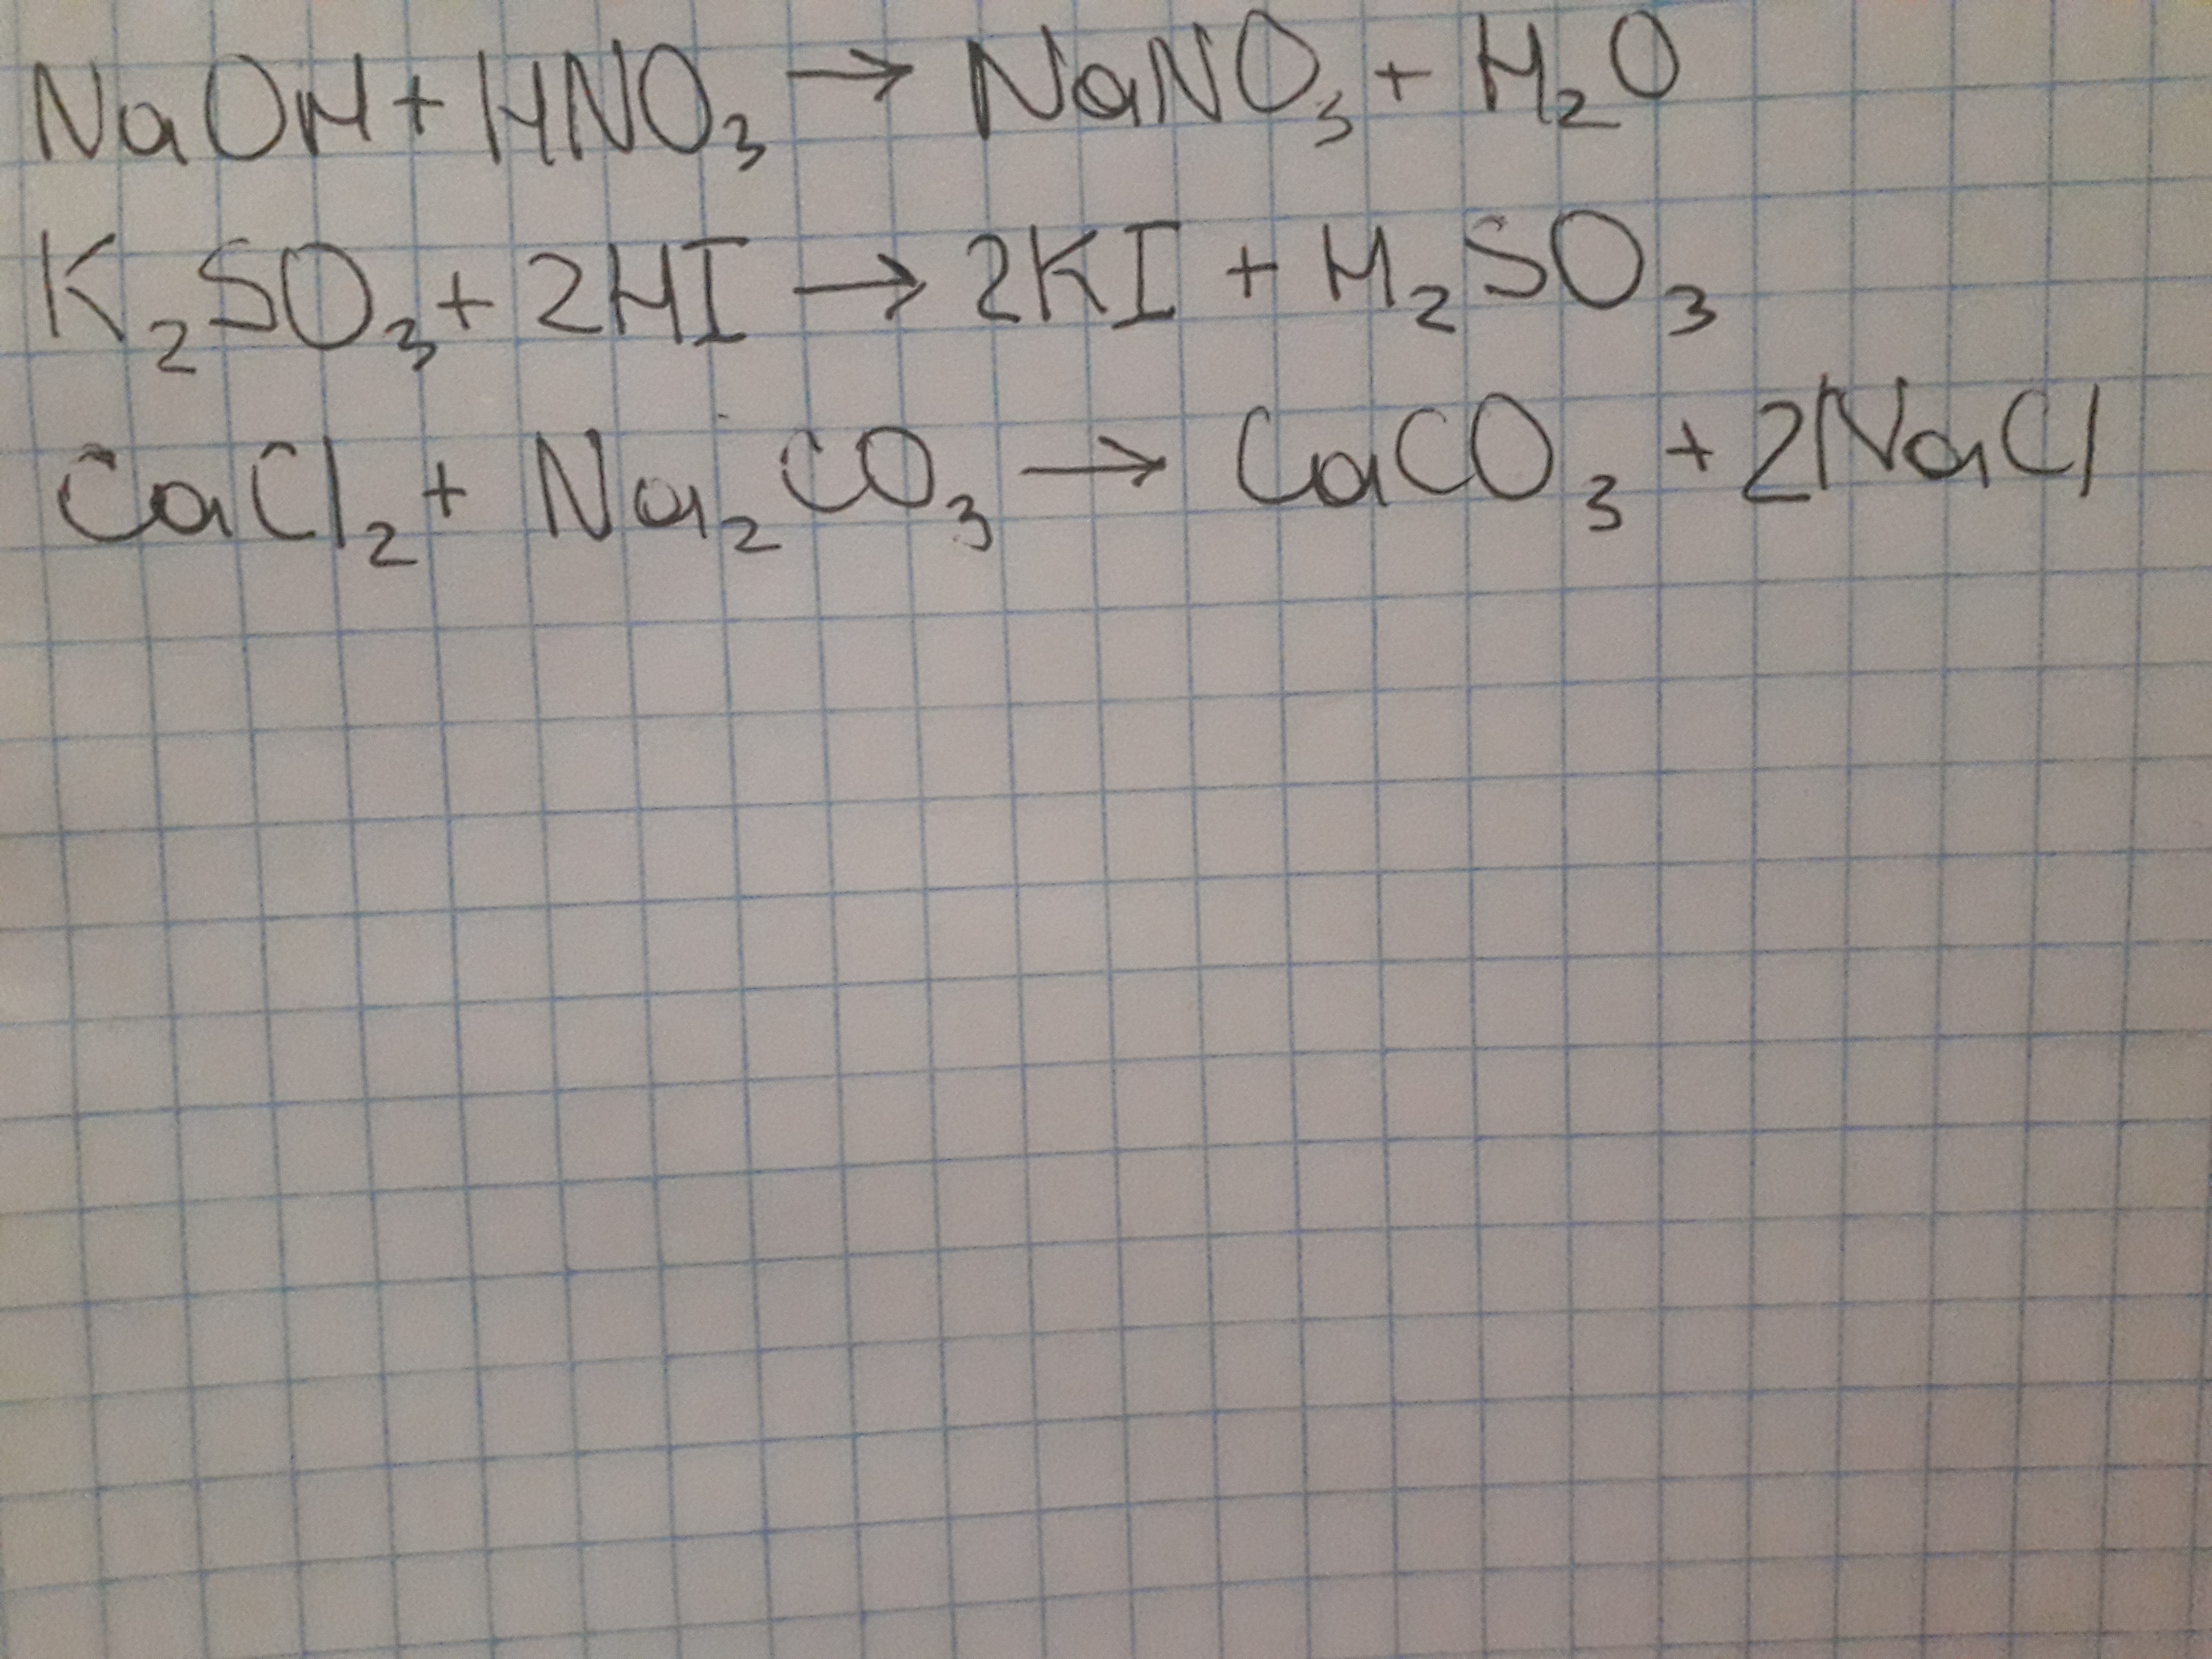 NaOH + HNO₃ → NaNO₃ + H₂O
K₂SO₃ + 2HI → 2KI + H₂SO₃
CaCl₂ + Na₂CO₃ → CaCO₃ + 2NaCl